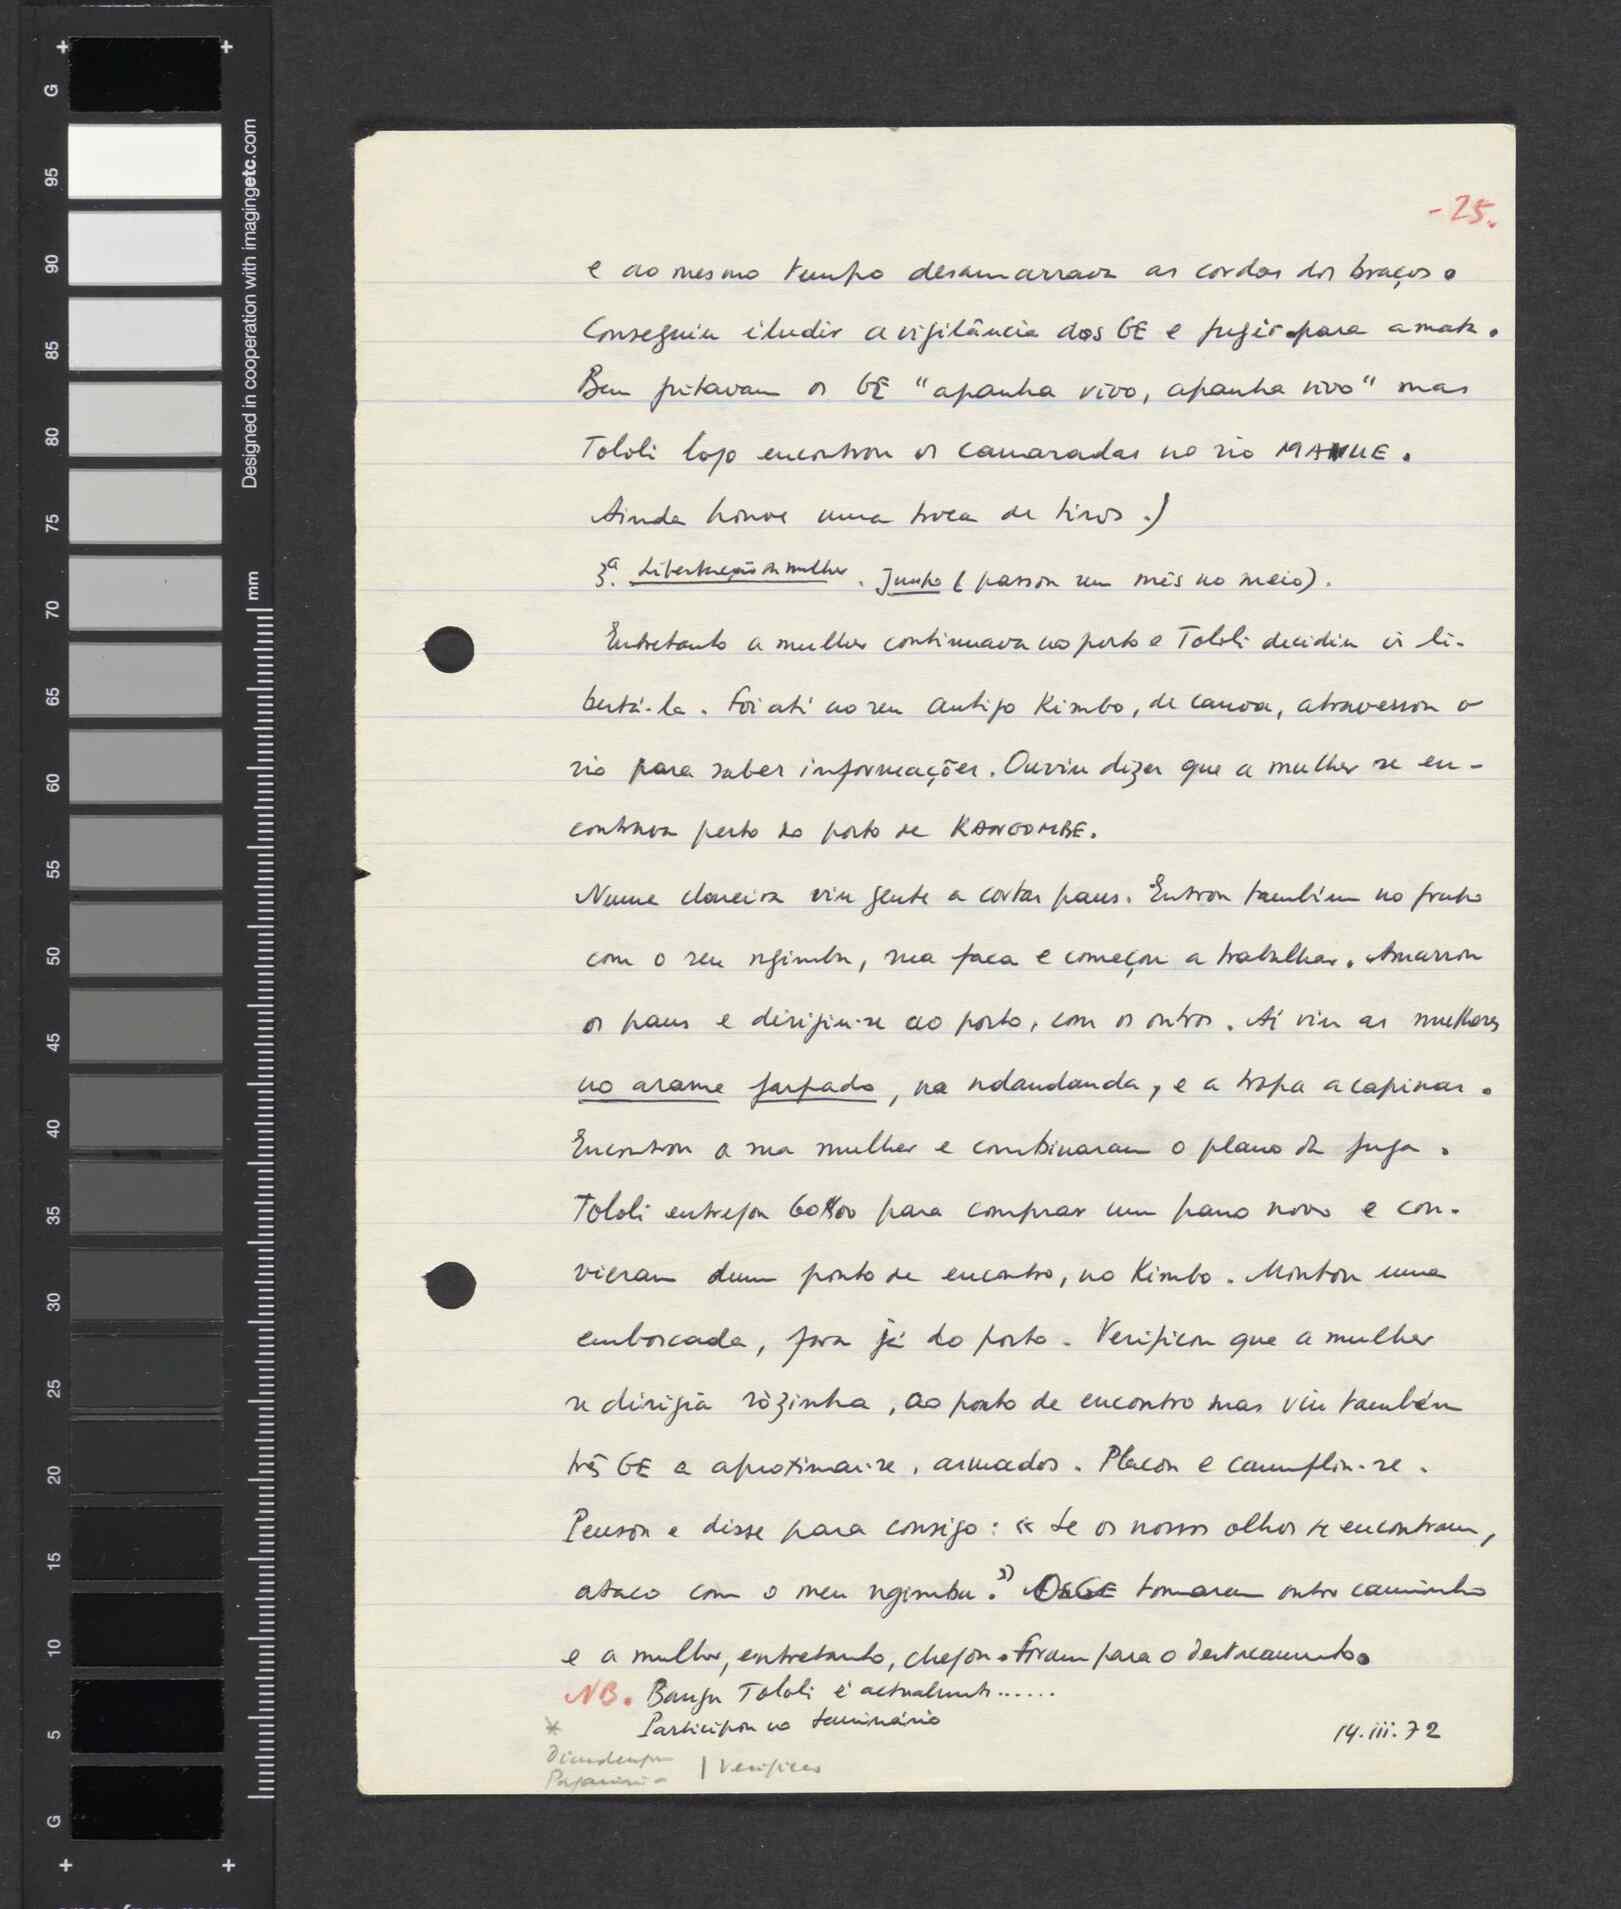 G
95
90
85
80
75
70
65
60
55
50
45
40
35
30
25
20
15
10
5
G
Designed in cooperation with imagingetc.com
mm
-25.
e ao mesmo tempo desamarrava as cordas dos braços.
Conseguiu iludir a vigilância dos GE e fugir para a mata.
Bem gritavam os GE "apanha vivo, apanha vivo" mas
Tololi logo encontrou os camaradas no rio
Ainda houve uma troca de tiros.)
3ª. Libertação da mulher. Junho (passou um mês no meio).
Entretanto a mulher continuava no posto e Tololi decidiu ir li-
bertá-la. Foi até ao seu antigo Kimbo, de canoa, atravessou o
rio para saber informações. Ouviu dizer que a mulher se en-
contrava perto do posto de KANGOMBE.
Numa clareira viu gente a cortar paus. Entrou também no grupo
com o seu ngimbu, sua faca e começou a trabalhar. Amarrou
os paus e dirigiu-se ao posto, com os outros. Aí viu as mulheres
no arame farpado, na ndandanda, e a tropa a capinar.
Encontrou a sua mulher e combinaram o plano da fuga.
Tololi entregou 60$00 para comprar um pano novo e con-
vieram dum ponto de encontro, no Kimbo. Montou uma
emboscada, fora já do posto. Verificou que a mulher
se dirigia sòzinha, ao ponto de encontro mas viu também
três GE a aproximar-se, armados. Placou e camuflou-se.
Pensou e disse para consigo: « Se os nossos olhos se encontram,
ataco com o meu ngimbu.» Os GE tomaram outro caminho
e a mulher, entretanto, chegou. Foram para o destacamento.
NB. Bangu Tololi é actualmente......
Participou no Seminário
14.iii.72
*
| Verificar